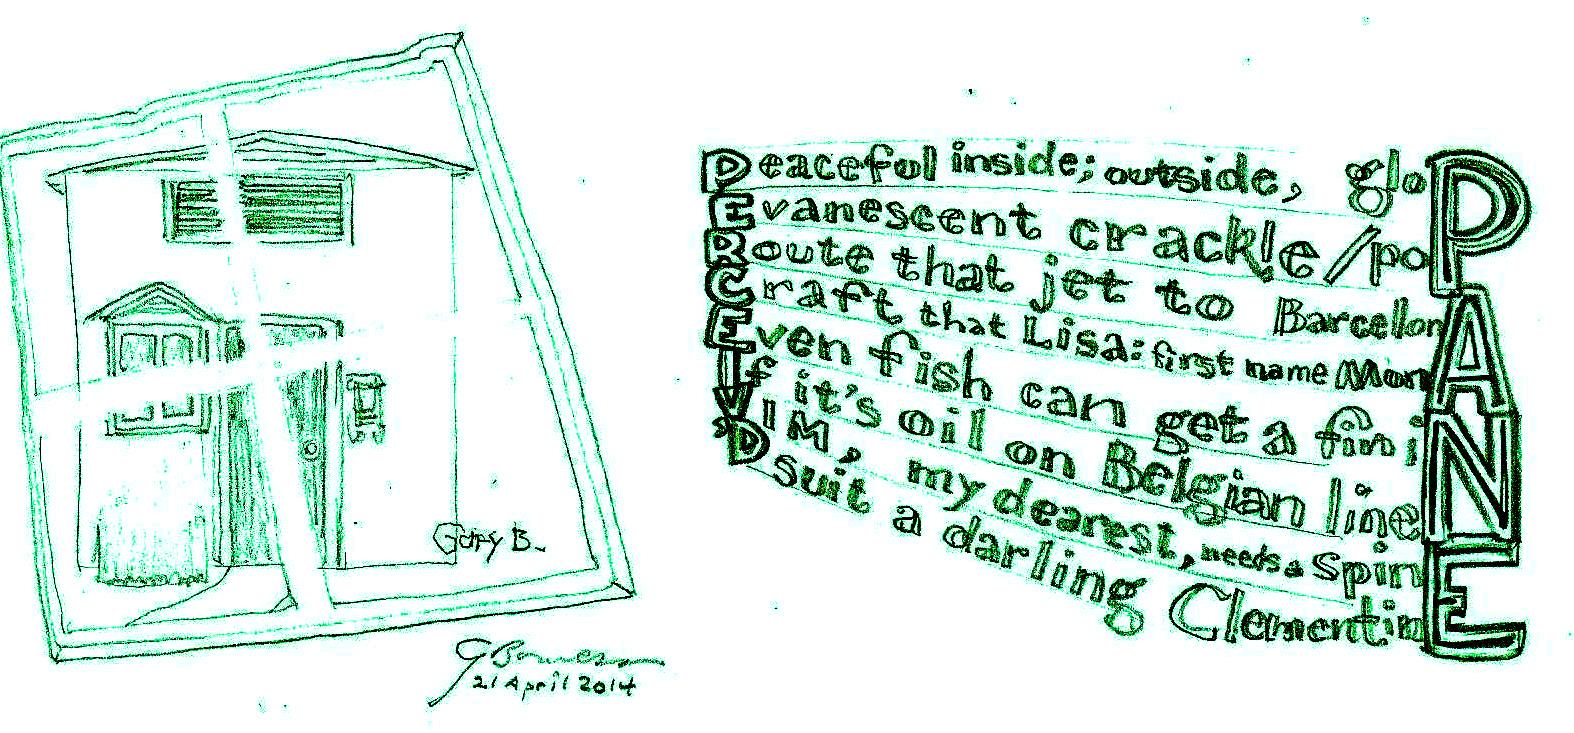 Gary B.
21 April 2014
Peaceful inside; outside, gloP
Evanescent crackle/poP
Route that jet to BarcelonA
Craft that Lisa: first name MonA
Even fish can get a fin iN
If it's oil on Belgian lineN
VIM, my dearest, needs a SpinE
'D suit a darling ClementinE